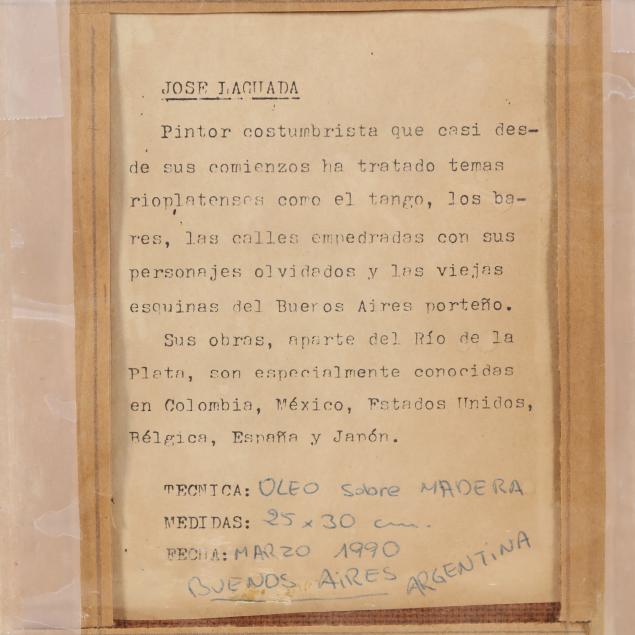 JOSE LACUADA
Pintor costumbrista que casi des-
de sus comienzos ha tratado temas
rioplatenses como el tango, los ba-
res, las calles empedradas con sus
personajes olvidados y las viejas
esquinas del Buenos Aires porteño.
Sus obras, aparte del Río de la
Plata, son especialmente conocidas
en Colombia, México, Estados Unidos,
Bélgica, España y Japón.
TECNICA: OLEO sobre MADERA
MEDIDAS: 25 x 30 cm.
FECHA: MARZO 1990
BUENOS AIRES ARGENTINA